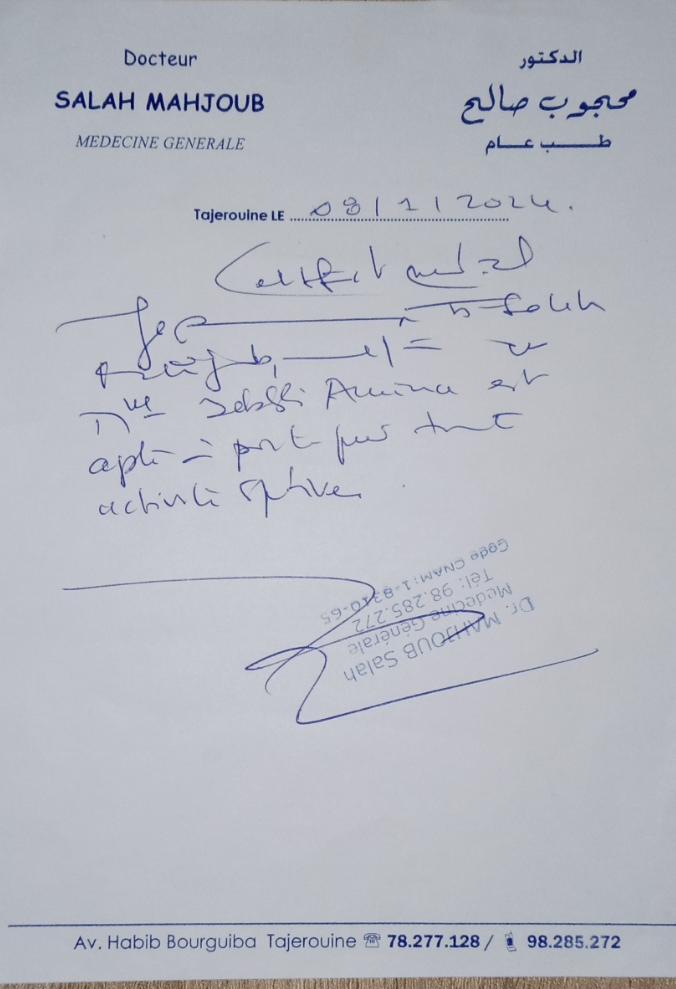 Docteur
الدكتور
SALAH MAHJOUB
محجوب صالح
MEDECINE GENERALE
طب عام
Tajerouine LE 08/1/2024.
Certificat médical
Je Dr Salah
Mahjoub,
Mme Amina est
apte à pour tout
activité sportive.
Dr. MAHJOUB Salah
Medecine Générale
Tél: 98.285.272
Code CNAM:
Av. Habib Bourguiba Tajerouine ☎ 78.277.128 / 98.285.272